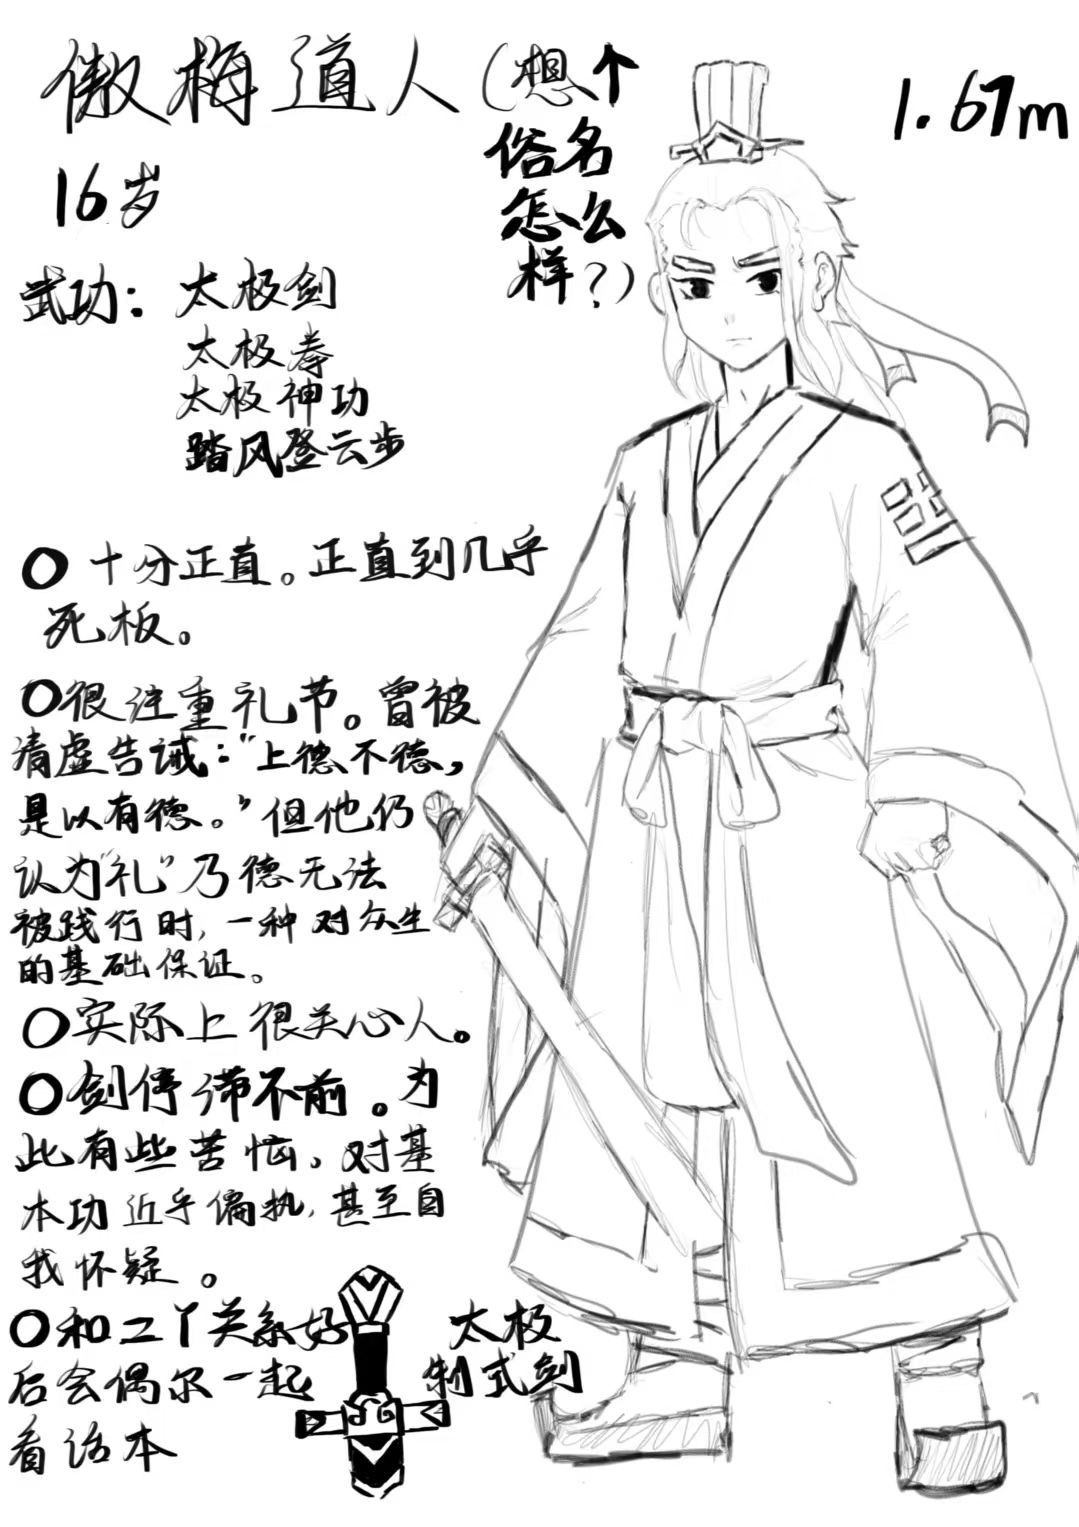 傲梅道人(想个
俗名
怎么
样?)
1.67m
16岁
武功:太极剑
太极拳
太极神功
踏风登云步
○十分正直。正直到几乎
死板。
○很注重礼节。曾被
清虚告诫:“上德不德,
是以有德。”但他仍
认为“礼”乃德无法
被践行时,一种对众生
的基础保证。
○实际上很关心人。
○剑停滞不前。为
此有些苦恼。对基
本功近乎偏执,甚至自
我怀疑。
○和二丫关系好
后会偶尔一起
看话本
太极
制式剑